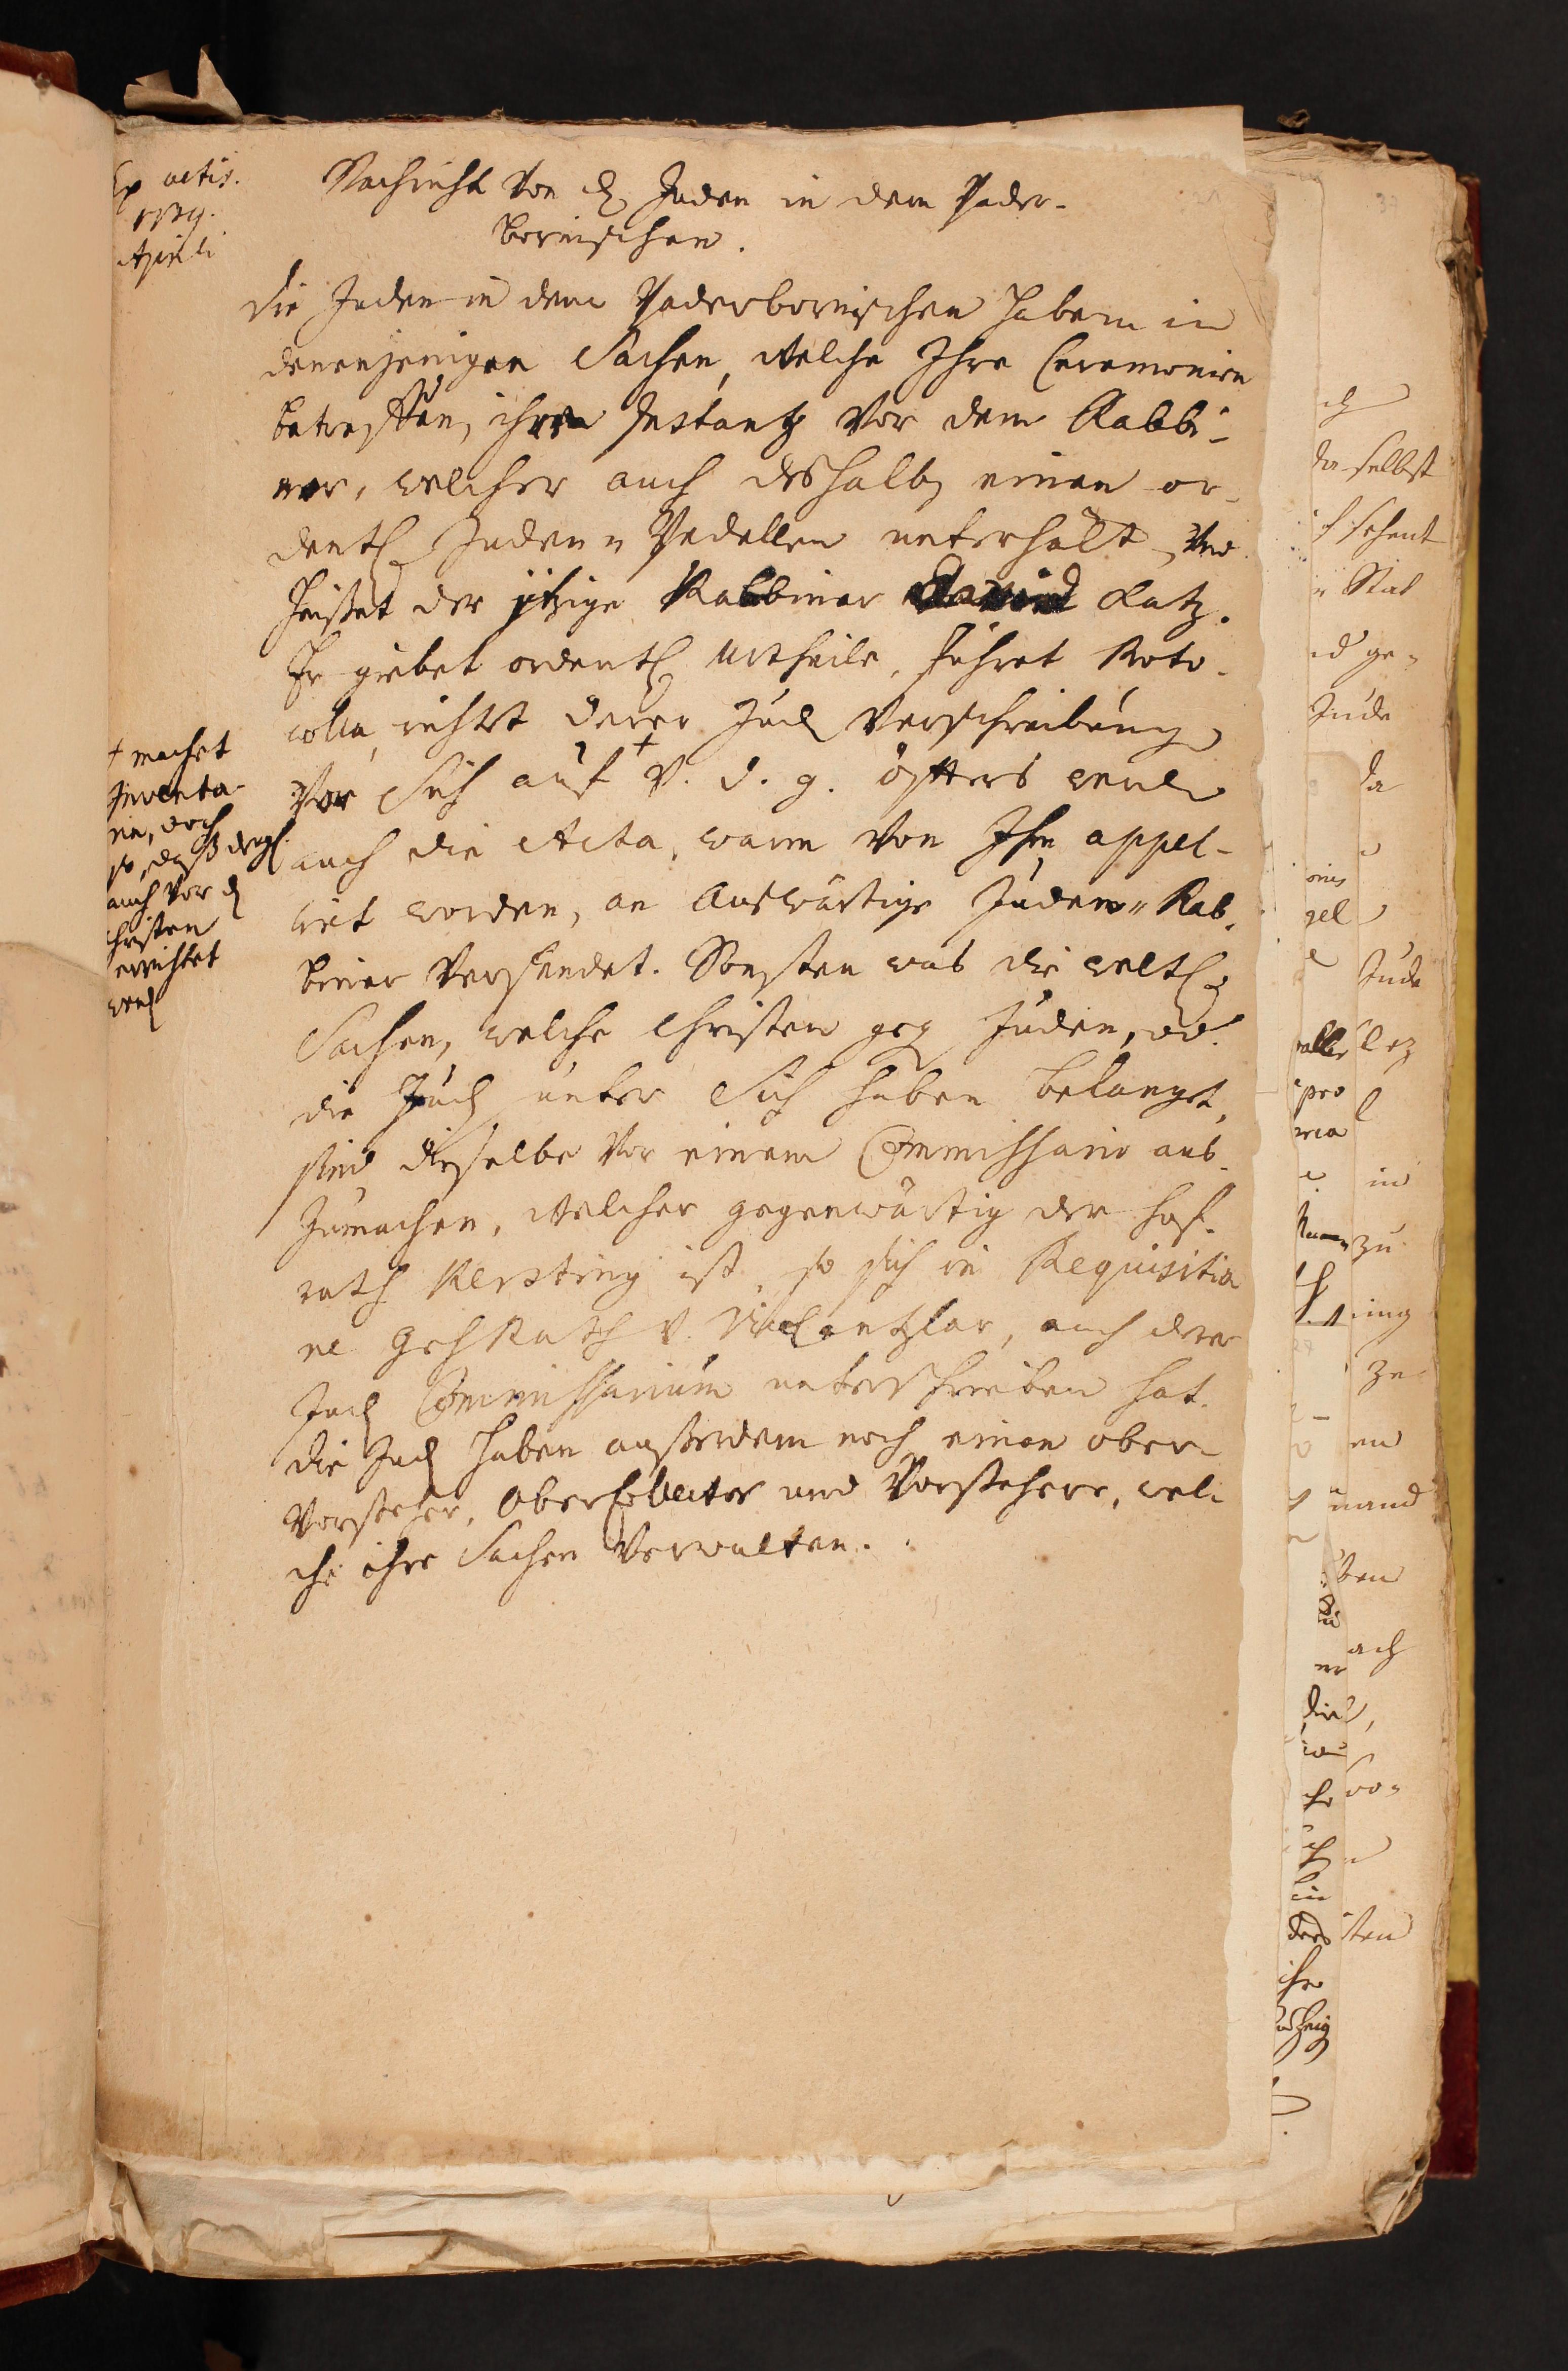 Ex actis.
1739.
April
Nachricht von d Juden in dem Pader-
bornischen.
Die Juden in dem Paderbornischen haben in
denenjenigen Sachen, welche Ihre Ceremonien
betreffen, ihre Instantz vor dem Rabbi-
ner, welcher auch deßhalb einen or-
dentl Juden-Pedellen unterhält, und
heißet der jtzige Rabbiner David Katz.
Er giebet ordentl Urtheile, führet Proto-
colla, richtet derer Jud Verschreibung
vor Sich auf + v. d. g. öfters werd
auch die Acta, wann von Ihm appel-
lirt worden, an Auswärtige Juden-Rab-
biner versendet. Sonsten was die weltl
Sachen, welche Christen geg Juden, od.
die Jud unter Sich haben belanget,
sind dieselbe vor einem Commissario aus-
zumachen, welcher gegenwärtig der Hof-
rath Kersting ist, so sich in Requisitio
ne GehRath v. ViceCantzlar, auch derer
Jud Commissarium unterschrieben hat.
Die Jud haben außerdem noch einen ober-
vorsteher, Ober und Vorstehere, wel-
che ihre Sachen verwalten.
+ machet
Inventa-
ria, doch
so, daß dergl
auch vor d
Christen
errichtet
werd
da-selbst
Stat
id ge-
Jude
da
gel
Jude
pro
in
zu
ing
ze
en
mand
ben
ach
die
wo-
sten
ihr